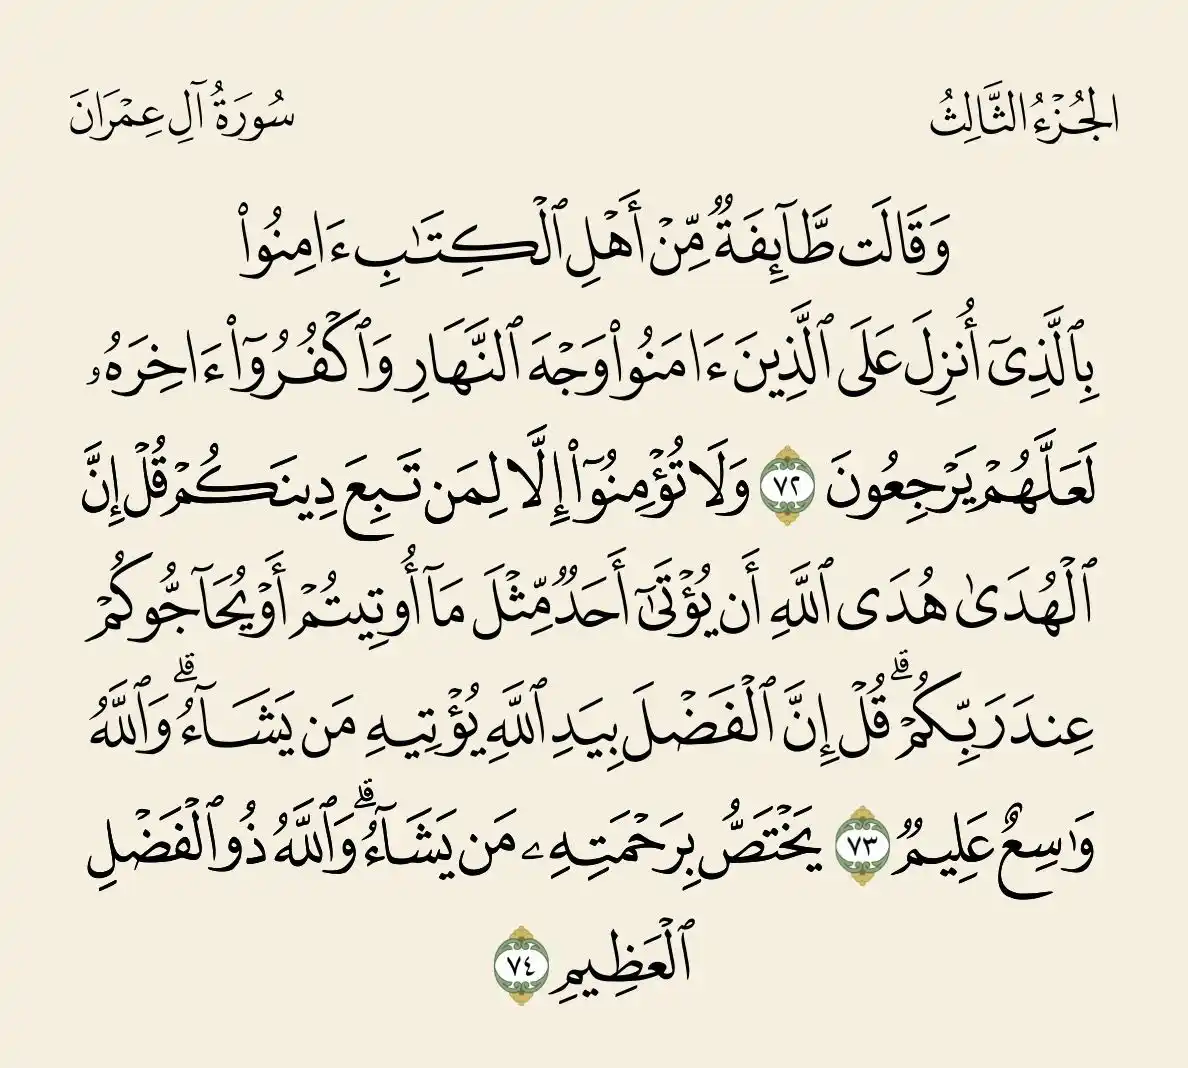 الجُزْءُ الثَّالِثُ
سُورَةُ آلِ عِمْرَانَ
وَقَالَت طَّآئِفَةٌ مِّنْ أَهْلِ ٱلْكِتَـٰبِ ءَامِنُوا۟
بِٱلَّذِىٓ أُنزِلَ عَلَى ٱلَّذِينَ ءَامَنُوا۟ وَجْهَ ٱلنَّهَارِ وَٱكْفُرُوٓا۟ ءَاخِرَهُۥ
لَعَلَّهُمْ يَرْجِعُونَ ٧٢ وَلَا تُؤْمِنُوٓا۟ إِلَّا لِمَن تَبِعَ دِينَكُمْ قُلْ إِنَّ
ٱلْهُدَىٰ هُدَى ٱللَّهِ أَن يُؤْتَىٰٓ أَحَدٌ مِّثْلَ مَآ أُوتِيتُمْ أَوْ يُحَآجُّوكُمْ
عِندَ رَبِّكُمْ ۗ قُلْ إِنَّ ٱلْفَضْلَ بِيَدِ ٱللَّهِ يُؤْتِيهِ مَن يَشَآءُ ۗ وَٱللَّهُ
وَٰسِعٌ عَلِيمٌ ٧٣ يَخْتَصُّ بِرَحْمَتِهِۦ مَن يَشَآءُ ۗ وَٱللَّهُ ذُو ٱلْفَضْلِ
ٱلْعَظِيمِ ٧٤